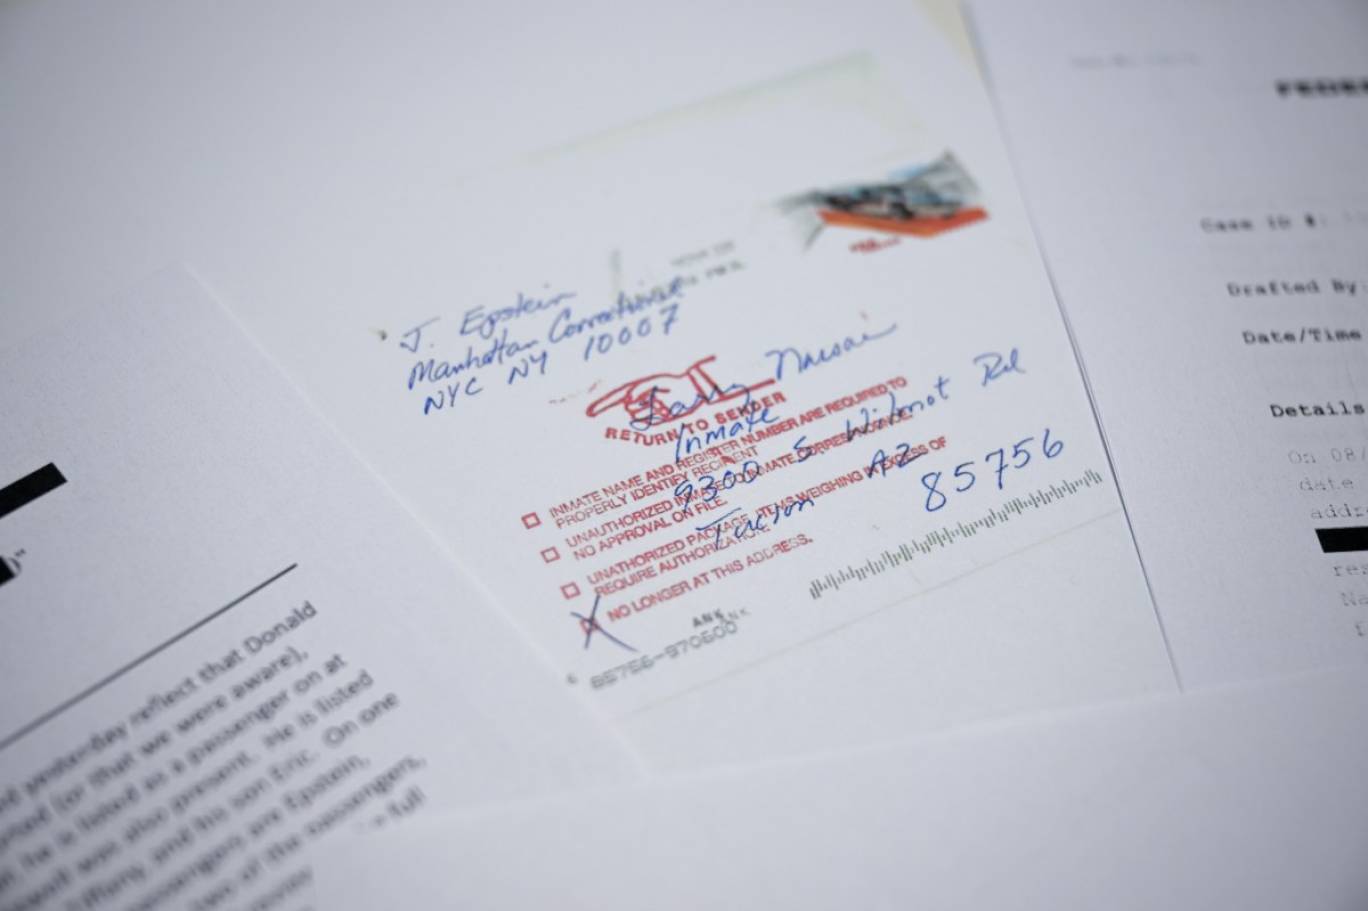 J. Epstein
Manhattan Correctional
NYC NY 10007
Larry Nassar
Inmate
9300 S Wilmot Rd
Tucson AZ
85756
RETURN TO SENDER
INMATE NAME AND REGISTER NUMBER ARE REQUIRED TO
PROPERLY IDENTIFY RECIPIENT
UNAUTHORIZED INMATE TO INMATE CORRESPONDENCE,
NO APPROVAL ON FILE.
UNATHORIZED PACKAGE, ITEMS WEIGHING IN EXCESS OF
REQUIRE AUTHORIZATION.
X NO LONGER AT THIS ADDRESS.
ANK
85756-970600
yesterday reflect that Donald
(or that we were aware),
he is listed as a passenger on at
was also present. He is listed
and his son Eric. On one
passengers are Epstein,
two of the passengers,
full
FEDER
Case ID #:
Drafted By:
Date/Time
Details
On 08/
date
addre
res
Na
f